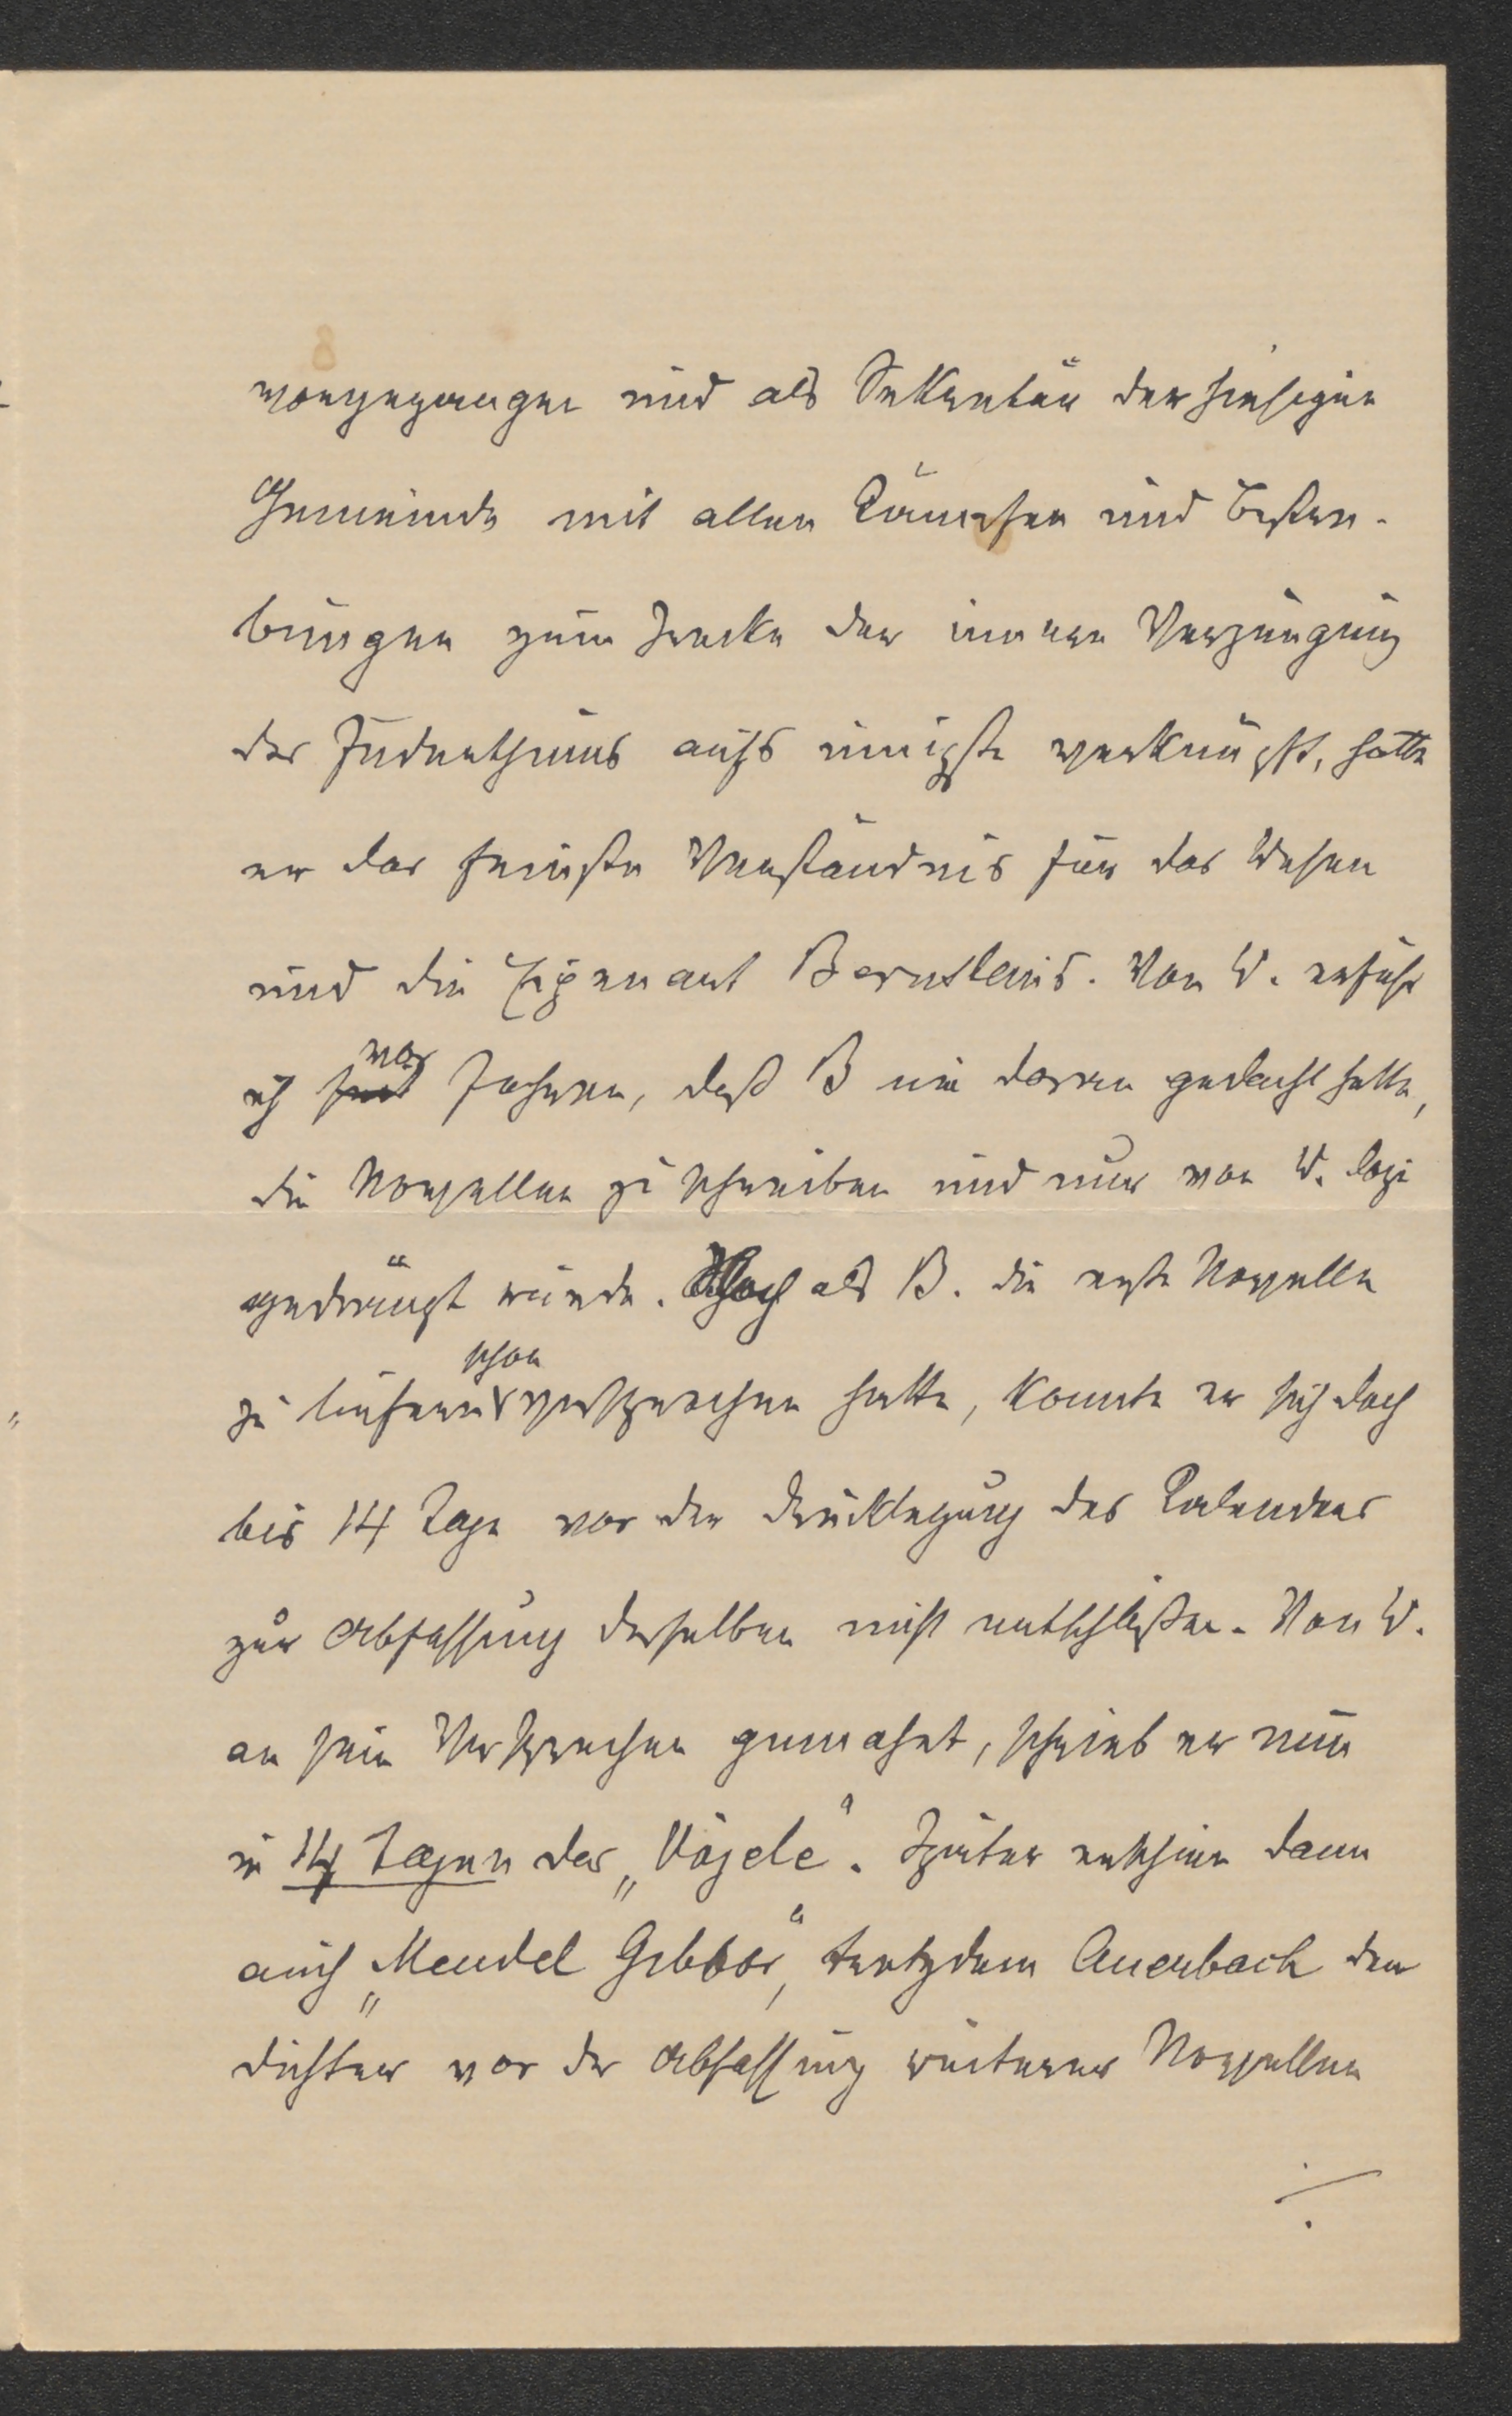 vorgegangen und als Sekretär der hiesigen
Gemeinde mit allen Kämpfen und Bestre-
bungen zum Zwecke der inneren Verjüngung
des Judenthums aufs innigste verknüpft, hatte
er das feinste Verständnis für das Wesen
und die Eigenart Bernsteins. Von W. erfuhr
ich vor Jahren, daß B nie daran gedacht hatte,
die Novellen zu schreiben und nur von W. dazu
gedrängt wurde. als B. die erste Novelle
zu liefern schon versprochen hatte, konnte er sich doch
bis 14 Tage vor der Drucklegung des Kalenders
zur Abfassung derselben nicht entschließen. Von W.
an sein Versprechen gemahnt, schrieb er nun
in 14 Tagen das „Vögele“. Später erschien dann
auch „Mendel Gibbor“, trotzdem Auerbach den
Dichter vor der Abfassung weiterer Novellen
./.